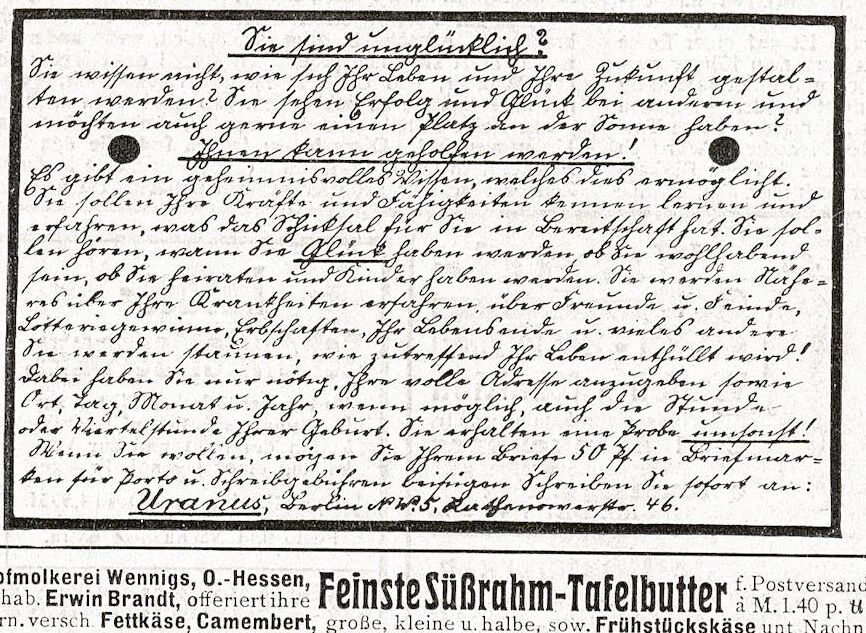 Sie sind unglücklich?
Sie wissen nicht, wie sich Ihr Leben und Ihre Zukunft gestal-
ten werden? Sie sehen Erfolg und Glück bei anderen und
möchten auch gerne einen Platz an der Sonne haben?
Ihnen kann geholfen werden!
Es gibt ein geheimnisvolles Wissen, welches dies ermöglicht.
Sie sollen Ihre Kräfte und Fähigkeiten kennen lernen und
erfahren, was das Schicksal für Sie in Bereitschaft hat. Sie sol-
len hören, wann Sie Glück haben werden, ob Sie wohlhabend
sein, ob Sie heiraten und Kinder haben werden. Sie werden Nähe-
res über Ihre Krankheiten erfahren, über Freunde u. Feinde,
Lotteriegewinne, Erbschaften, Ihr Lebensende u. vieles andere
Sie werden staunen, wie zutreffend Ihr Leben enthüllt wird!
Dabei haben Sie nur nötig, Ihre volle Adresse anzugeben sowie
Ort, Tag, Monat u. Jahr, wenn möglich, auch die Stunde
oder Viertelstunde Ihrer Geburt. Sie erhalten eine Probe umsonst!
Wenn Sie wollen, mögen Sie Ihrem Briefe 50 Pf. in Briefmar-
ken für Porto u. Schreibgebühren beifügen Schreiben Sie sofort an:
Uranus, Berlin N.W. 5, Rathenowerstr. 46.
ofmolkerei Wennigs, O.-Hessen,
hab. Erwin Brandt, offeriert ihre
Feinste Süßrahm-Tafelbutter
f. Postversand
à M. 1.40 p.
rn. versch. Fettkäse, Camembert, große, kleine u. halbe, sow. Frühstückskäse unt. Nachn